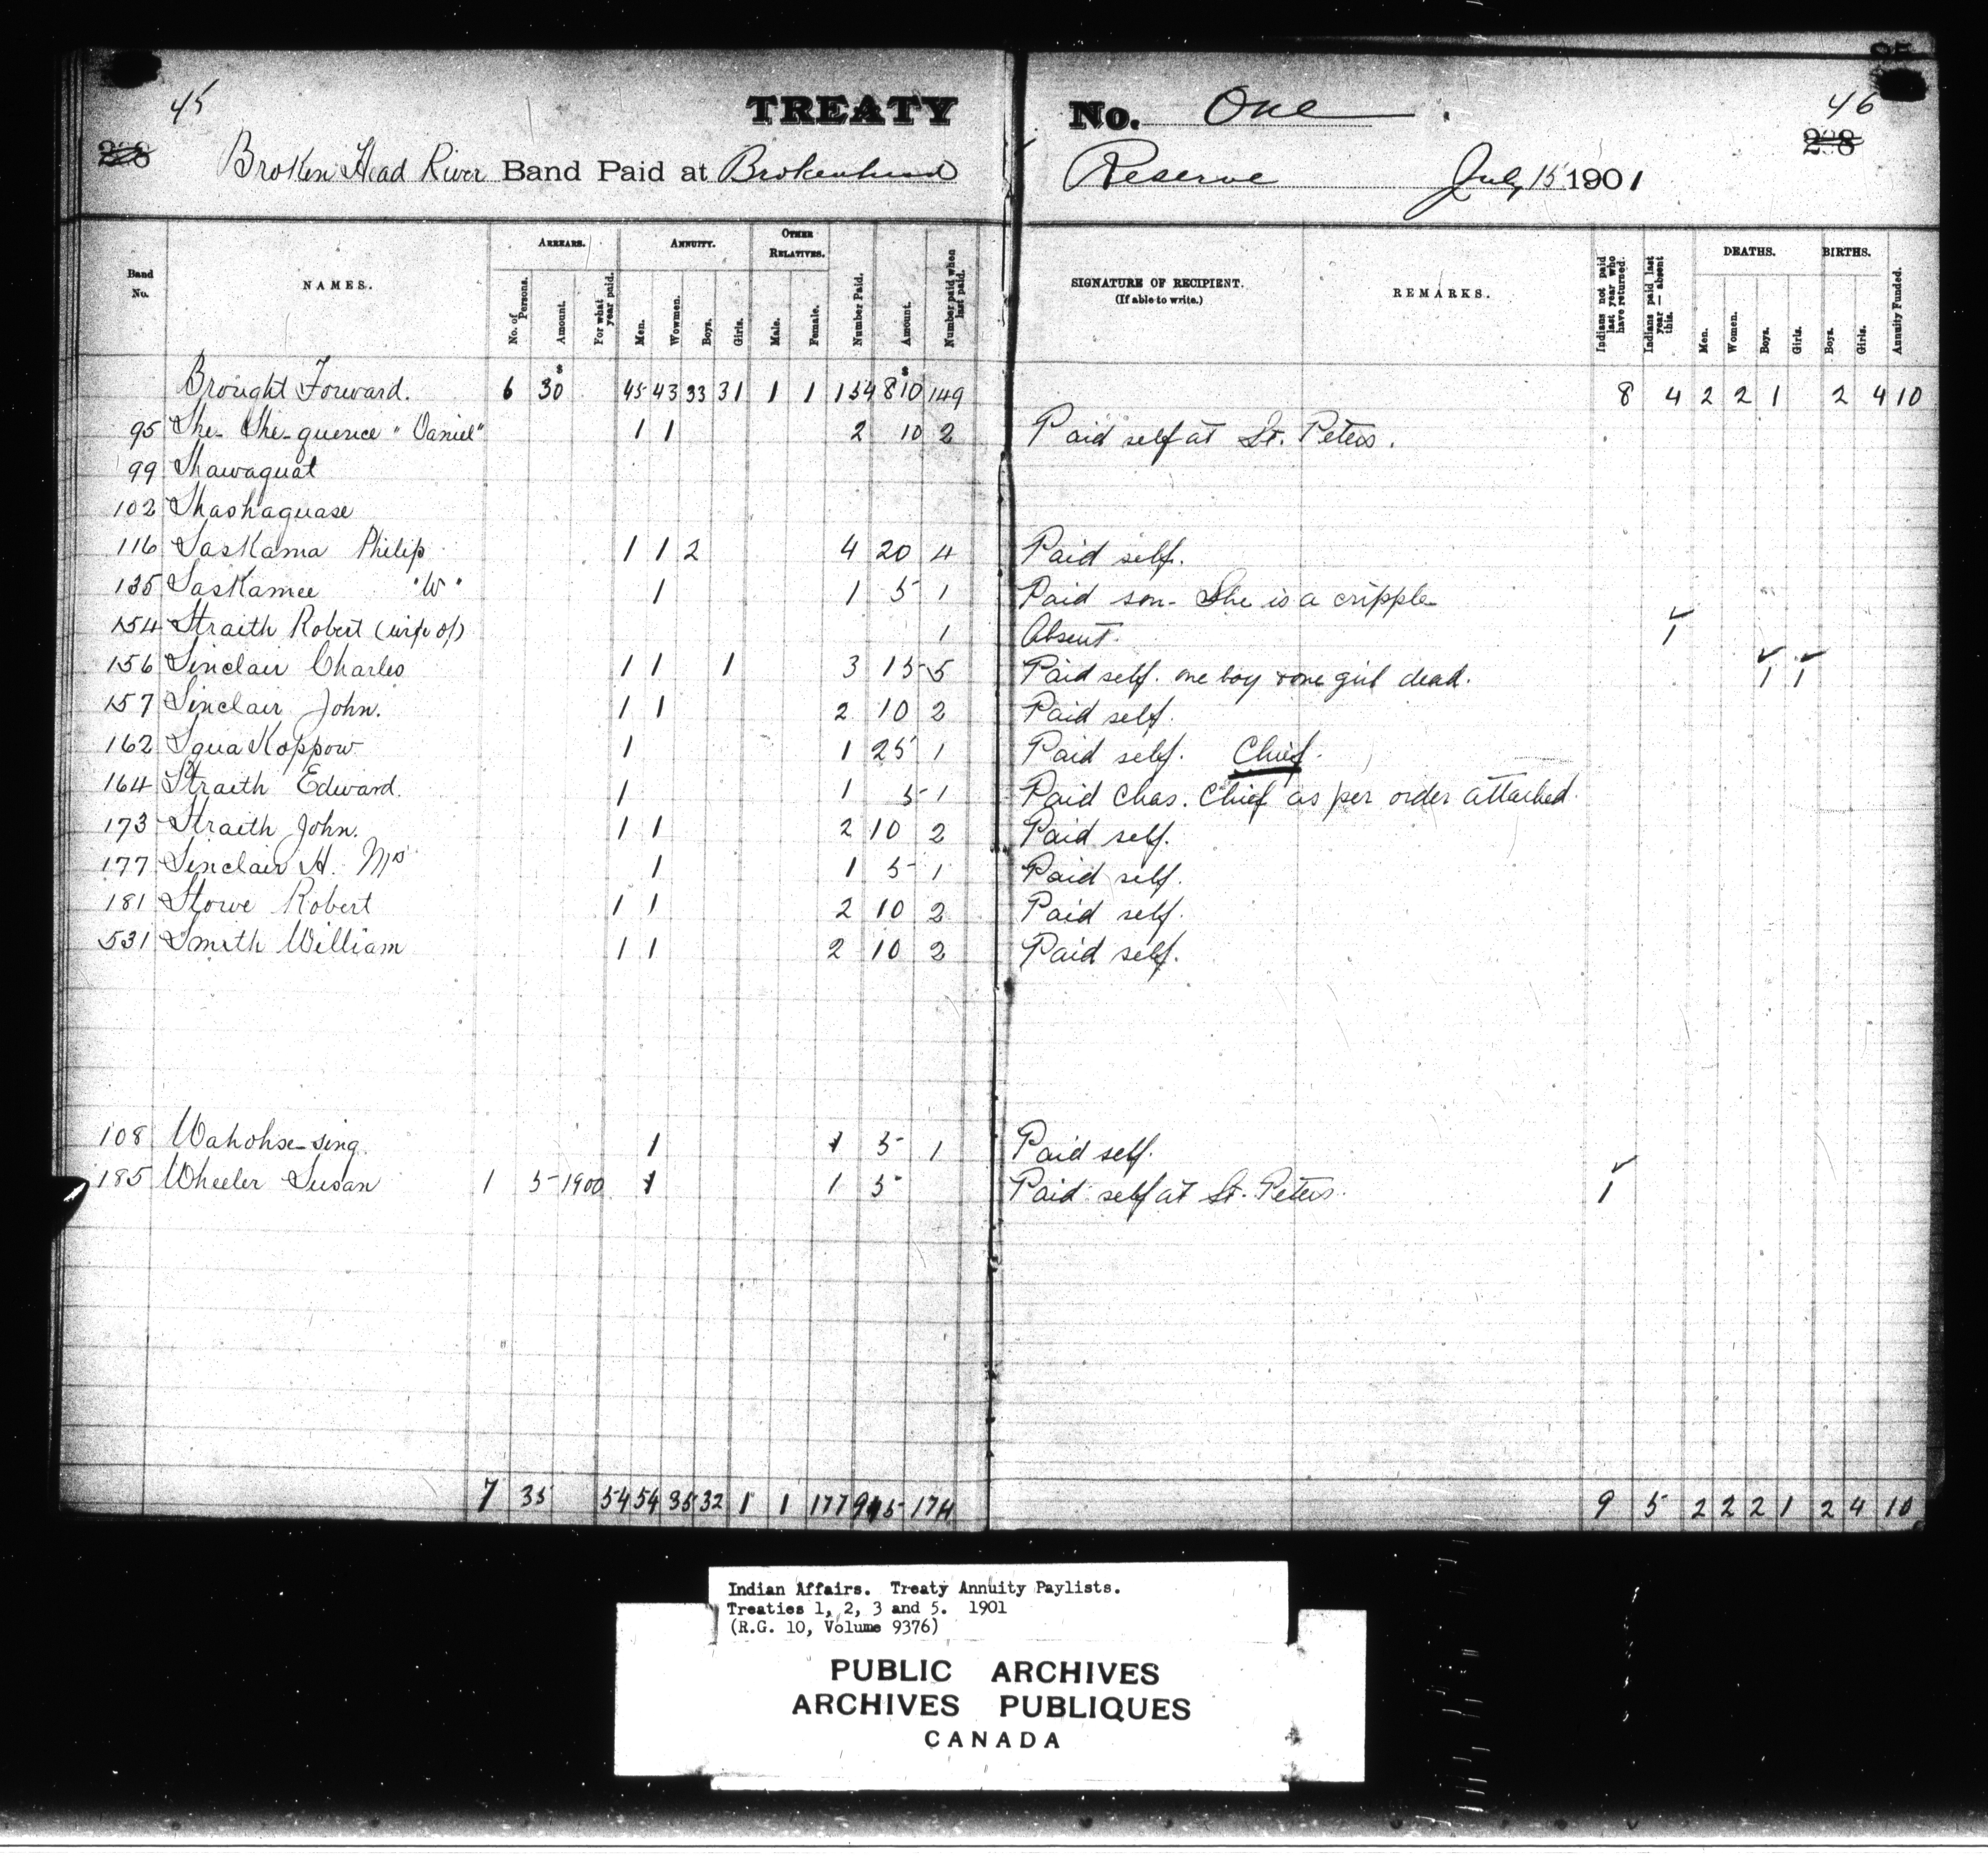 45 TREATY No. One. 46
Broken Head River Band Paid at Brokenhead Reserve July 15 1901
Band No. NAMES. ARREARS. No. of Persons. Amount. For what year paid. ANNUITY. Men. Wowmen. Boys. Girls. OTHER RELATIVES. Male. Female. Number Paid. Amount. Number paid when last paid. SIGNATURE OF RECIPIENT. (If able to write.) REMARKS. Indians not paid last year who have returned. Indians paid last year — absent this. DEATHS. Men. Women. Boys. Girls. BIRTHS. Boys. Girls. Annuity Funded.
Brought Forward. 6 $30 45 43 33 31 1 1 154 $810 149 8 4 2 2 1 2 4 10
95 She-She-quence "Daniel" 1 1 2 10 2 Paid self at St. Peters.
99 Shawaquat
102 Shashaquase
116 Saskama Philip 1 1 2 4 20 4 Paid self.
135 Saskamee "W" 1 1 5 1 Paid son- She is a cripple
154 Straith Robert (wife of) 1 Absent. 1
156 Sinclair Charles 1 1 1 3 15 5 Paid self. one boy & one girl dead. 1 1
157 Sinclair John. 1 1 2 10 2 Paid self.
162 Squakoppow 1 1 25 1 Paid self. Chief.
164 Straith Edward. 1 1 5 1 Paid Chas. Chief as per order attached.
173 Straith John. 1 1 2 10 2 Paid self.
177 Sinclair H. Mrs 1 1 5 1 Paid self.
181 Stowe Robert 1 1 2 10 2 Paid self.
531 Smith William 1 1 2 10 2 Paid self.
108 Wahohse-sing. 1 1 5 1 Paid self.
185 Wheeler Susan 1 5 1900 1 1 5 Paid self at St. Peters. 1
7 35 54 54 35 32 1 1 177 945 174 9 5 2 2 2 1 2 4 10
Indian Affairs. Treaty Annuity Paylists.
Treaties 1, 2, 3 and 5. 1901
(R.G. 10, Volume 9376)
PUBLIC ARCHIVES
ARCHIVES PUBLIQUES
CANADA